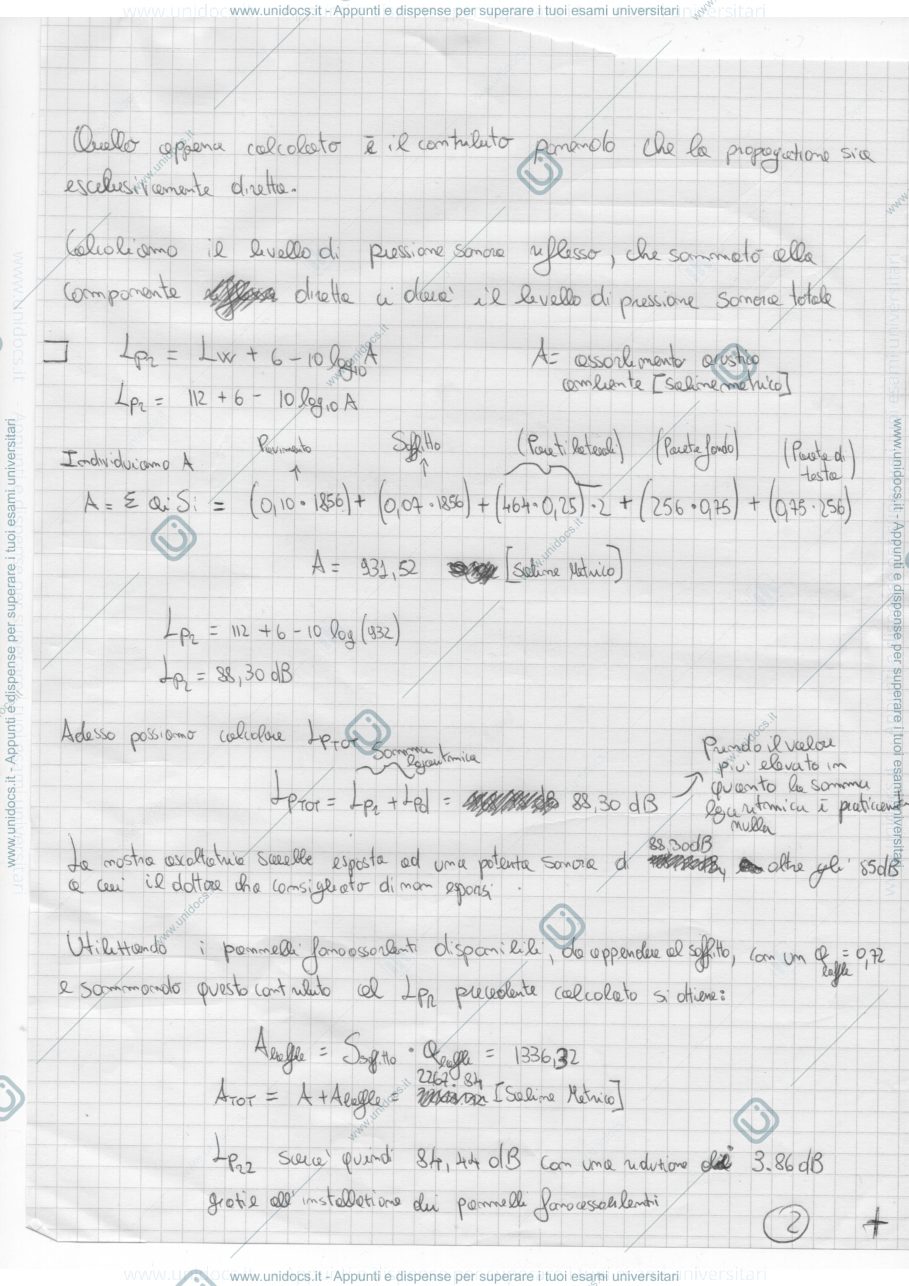 www.unidocs.it - Appunti e dispense per superare i tuoi esami universitari
Quello appena calcolato è il contributo ponendo che la propagazione sia
esclusivamente diretta.
Calcoliamo il livello di pressione sonora riflesso, che sommato alla
componente diretta ci darà il livello di pressione sonora totale
Lp2 = Lw + 6 - 10 log10 A
A = assorbimento acustico
ambiente [Sabine metrico]
Lp2 = 112 + 6 - 10 log10 A
Individuiamo A
Pavimento
Soffitto
(Pareti laterali)
(Parete fondo)
(Parete di
testa)
A = Σ ai Si = (0,10 · 1856) + (0,07 · 1856) + (464 · 0,25) · 2 + (256 · 0,75) + (0,75 · 256)
A = 931,52 [Sabine Metrico]
Lp2 = 112 + 6 - 10 log (932)
Lp2 = 88,30 dB
Adesso possiamo calcolare LpTOT
somma
logaritmica
LpTOT = Lp2 + Lpd = 88,30 dB
Prendo il valore
più elevato in
quanto la somma
logaritmica è praticamente
nulla
La nostra ascoltatrice sarebbe esposta ad una potenza sonora di 88,30dB, oltre gli 85dB
a cui il dottore ha consigliato di non esporsi.
Utilizzando i pannelli fonoassorbenti disponibili, da appendere al soffitto, con un a baffle = 0,72
e sommando questo contributo al Lp2 precedente calcolato si ottiene:
Abaffle = Ssoffitto · abaffle = 1336,32
ATOT = A + Abaffle = 2267.84 [Sabine Metrico]
Lp22 sarà quindi 84,44 dB con una riduzione di 3.86 dB
grazie all'installazione dei pannelli fonoassorbenti
2 +
www.unidocs.it - Appunti e dispense per superare i tuoi esami universitari